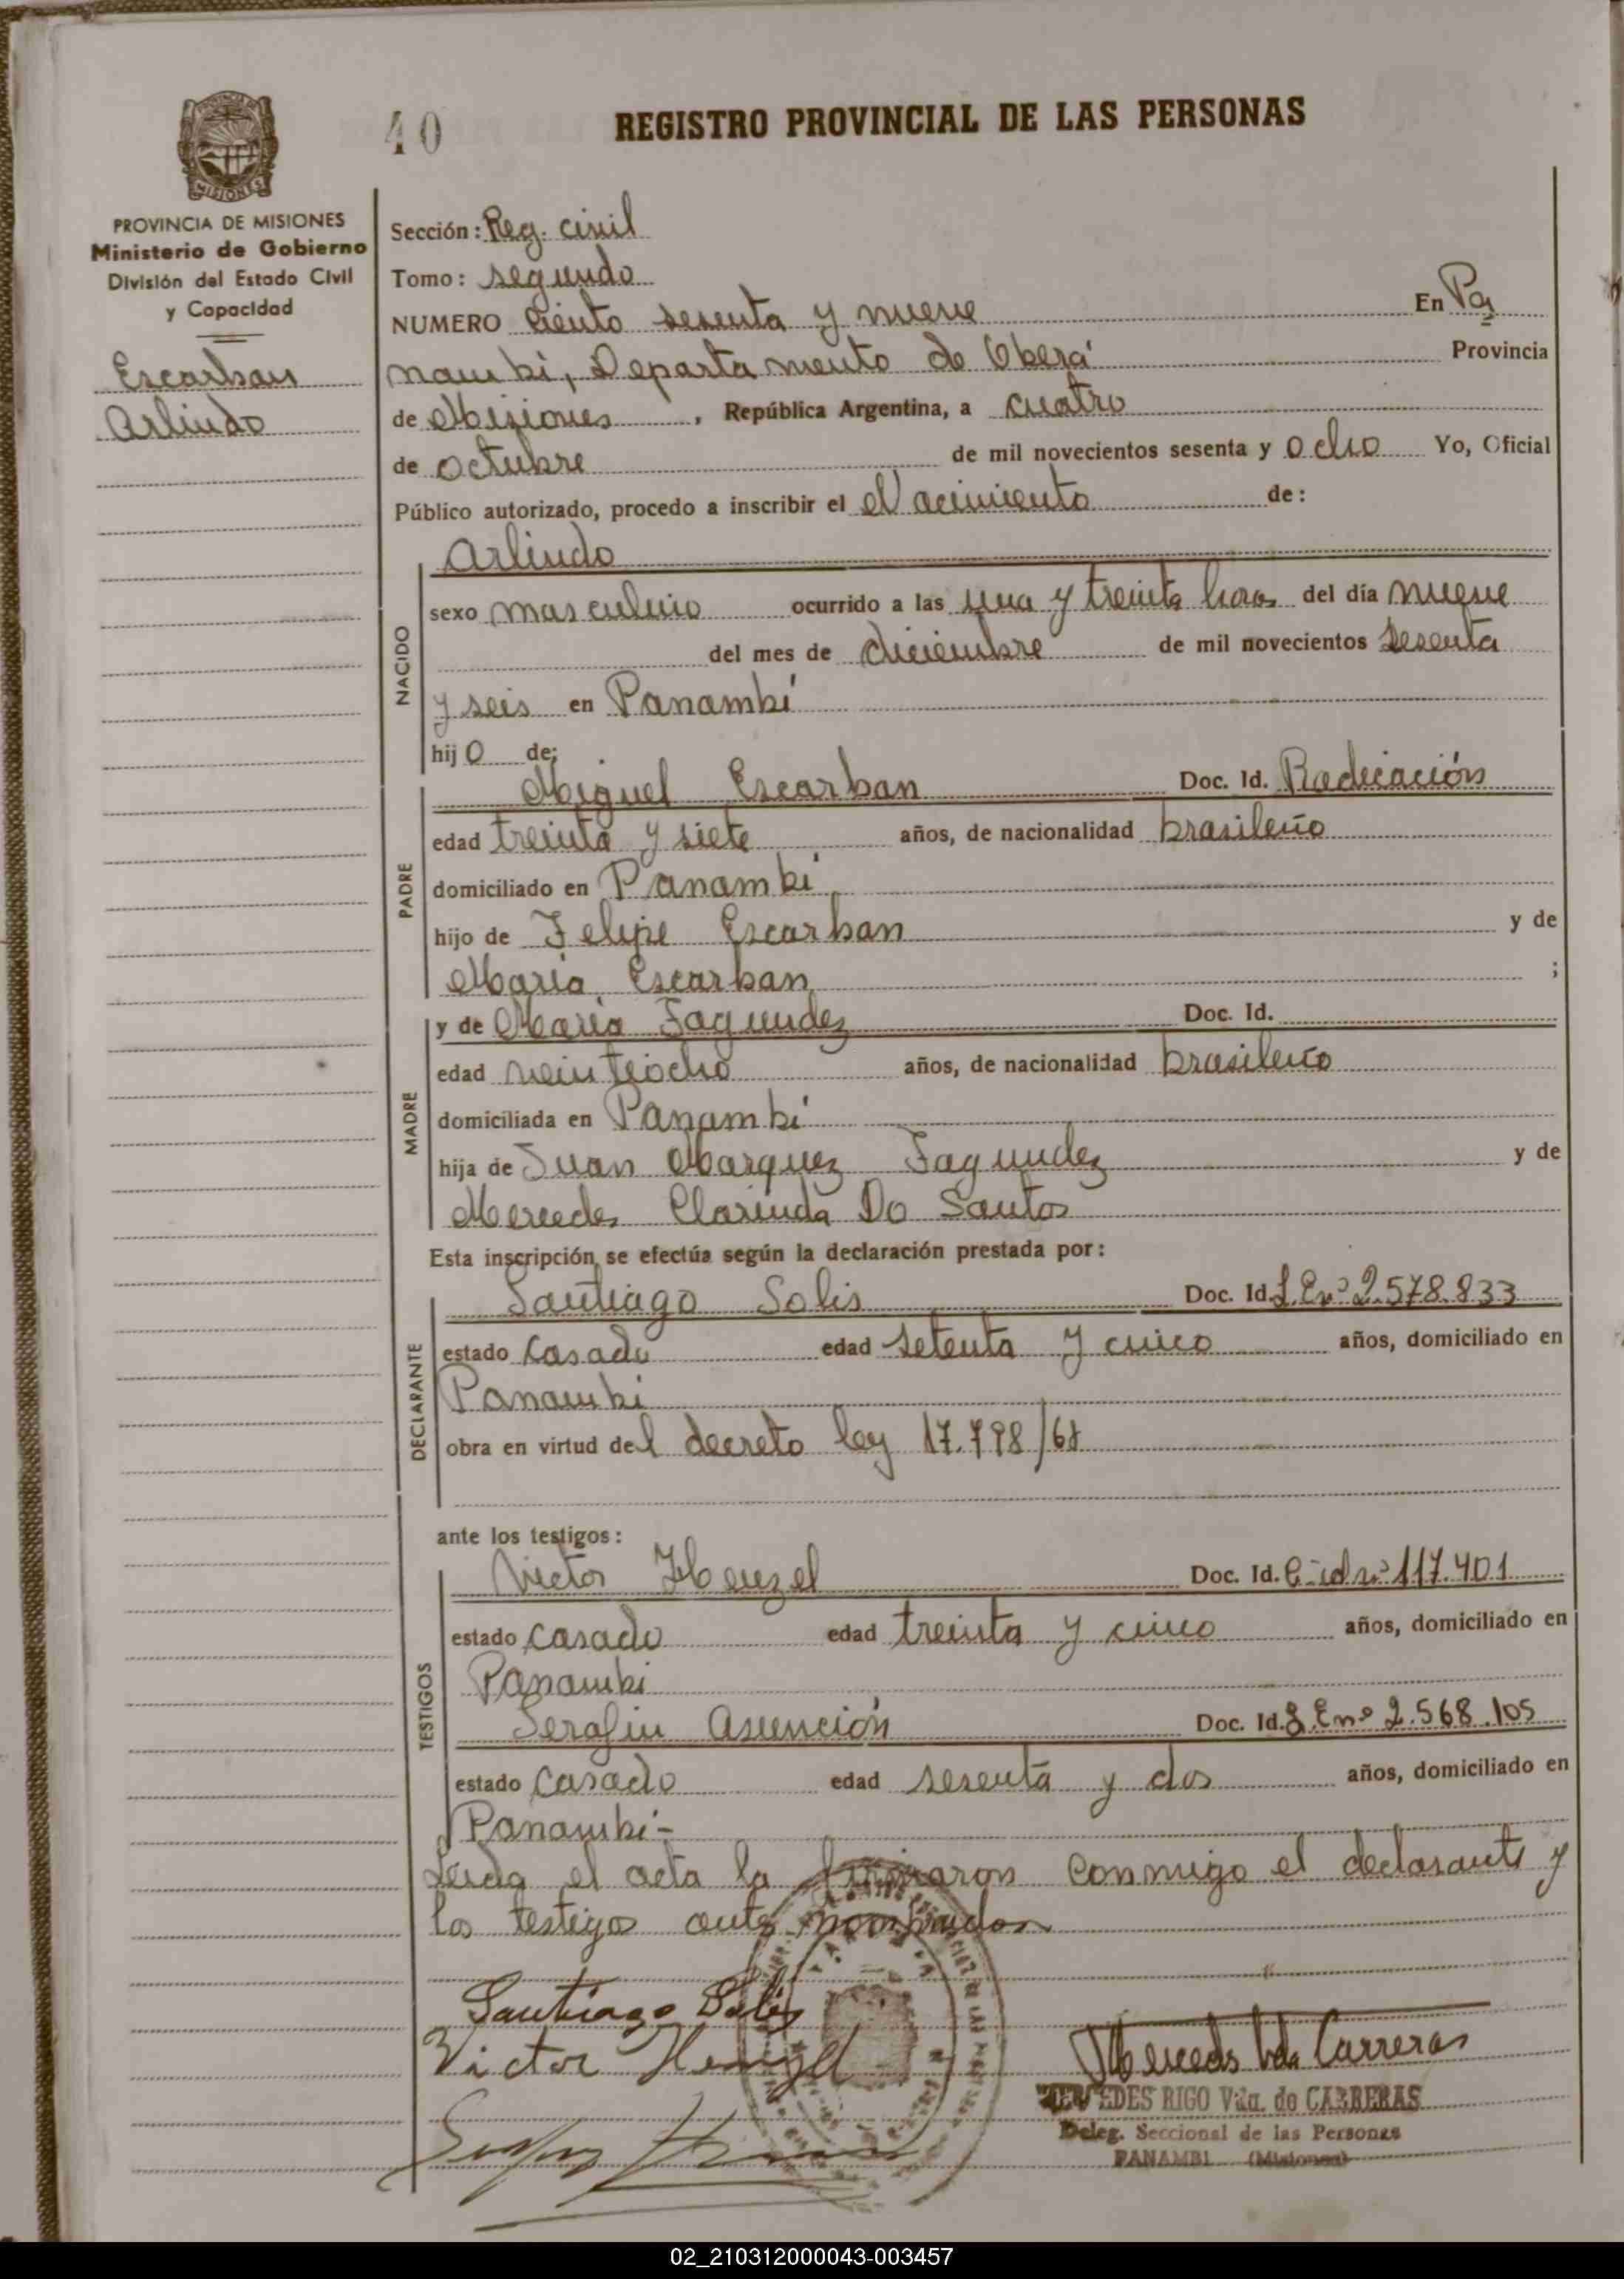 40
REGISTRO PROVINCIAL DE LAS PERSONAS
PROVINCIA DE MISIONES
Ministerio de Gobierno
División del Estado Civil
y Capacidad
Escarban
Arlindo
Sección: Reg. civil
Tomo: segundo
NUMERO Ciento sesenta y nueve En Pa
nambi, Departamento de Oberá Provincia
de Misiones, República Argentina, a cuatro
de octubre de mil novecientos sesenta y ocho Yo, Oficial
Público autorizado, procedo a inscribir el Nacimiento de:
Arlindo
NACIDO
sexo masculino ocurrido a las una y treinta horas del día nueve
del mes de diciembre de mil novecientos sesenta
y seis en Panambí
hijo de:
PADRE
Miguel Escarban Doc. Id. Radicación
edad treinta y siete años, de nacionalidad brasileño
domiciliado en Panambí
hijo de Felipe Escarban y de
María Escarban ;
MADRE
y de María Fagundez Doc. Id.
edad veintiocho años, de nacionalidad brasileño
domiciliada en Panambí
hija de Juan Marquez Fagundez y de
Mercedes Clarinda Do Santos
Esta inscripción se efectúa según la declaración prestada por:
DECLARANTE
Santiago Solis Doc. Id. L.E nº 2.578.833
estado casado edad setenta y cinco años, domiciliado en
Panambi
obra en virtud del decreto ley 17.798/68
ante los testigos:
TESTIGOS
Victor Henzel Doc. Id. C. id nº 117.401
estado casado edad treinta y cinco años, domiciliado en
Panambi
Serafin Asención Doc. Id. L.E nº 2.568.105
estado casado edad sesenta y dos años, domiciliado en
Panambí-
Leida el acta la firmaron conmigo el declarante y
los testigos ante nombrados
Santiago Solis
Victor Henzel
Mercedes Vda Carreras
MERCEDES RIGO Vda. de CARRERAS
Deleg. Seccional de las Personas
PANAMBI (Misiones)
02_210312000043-003457